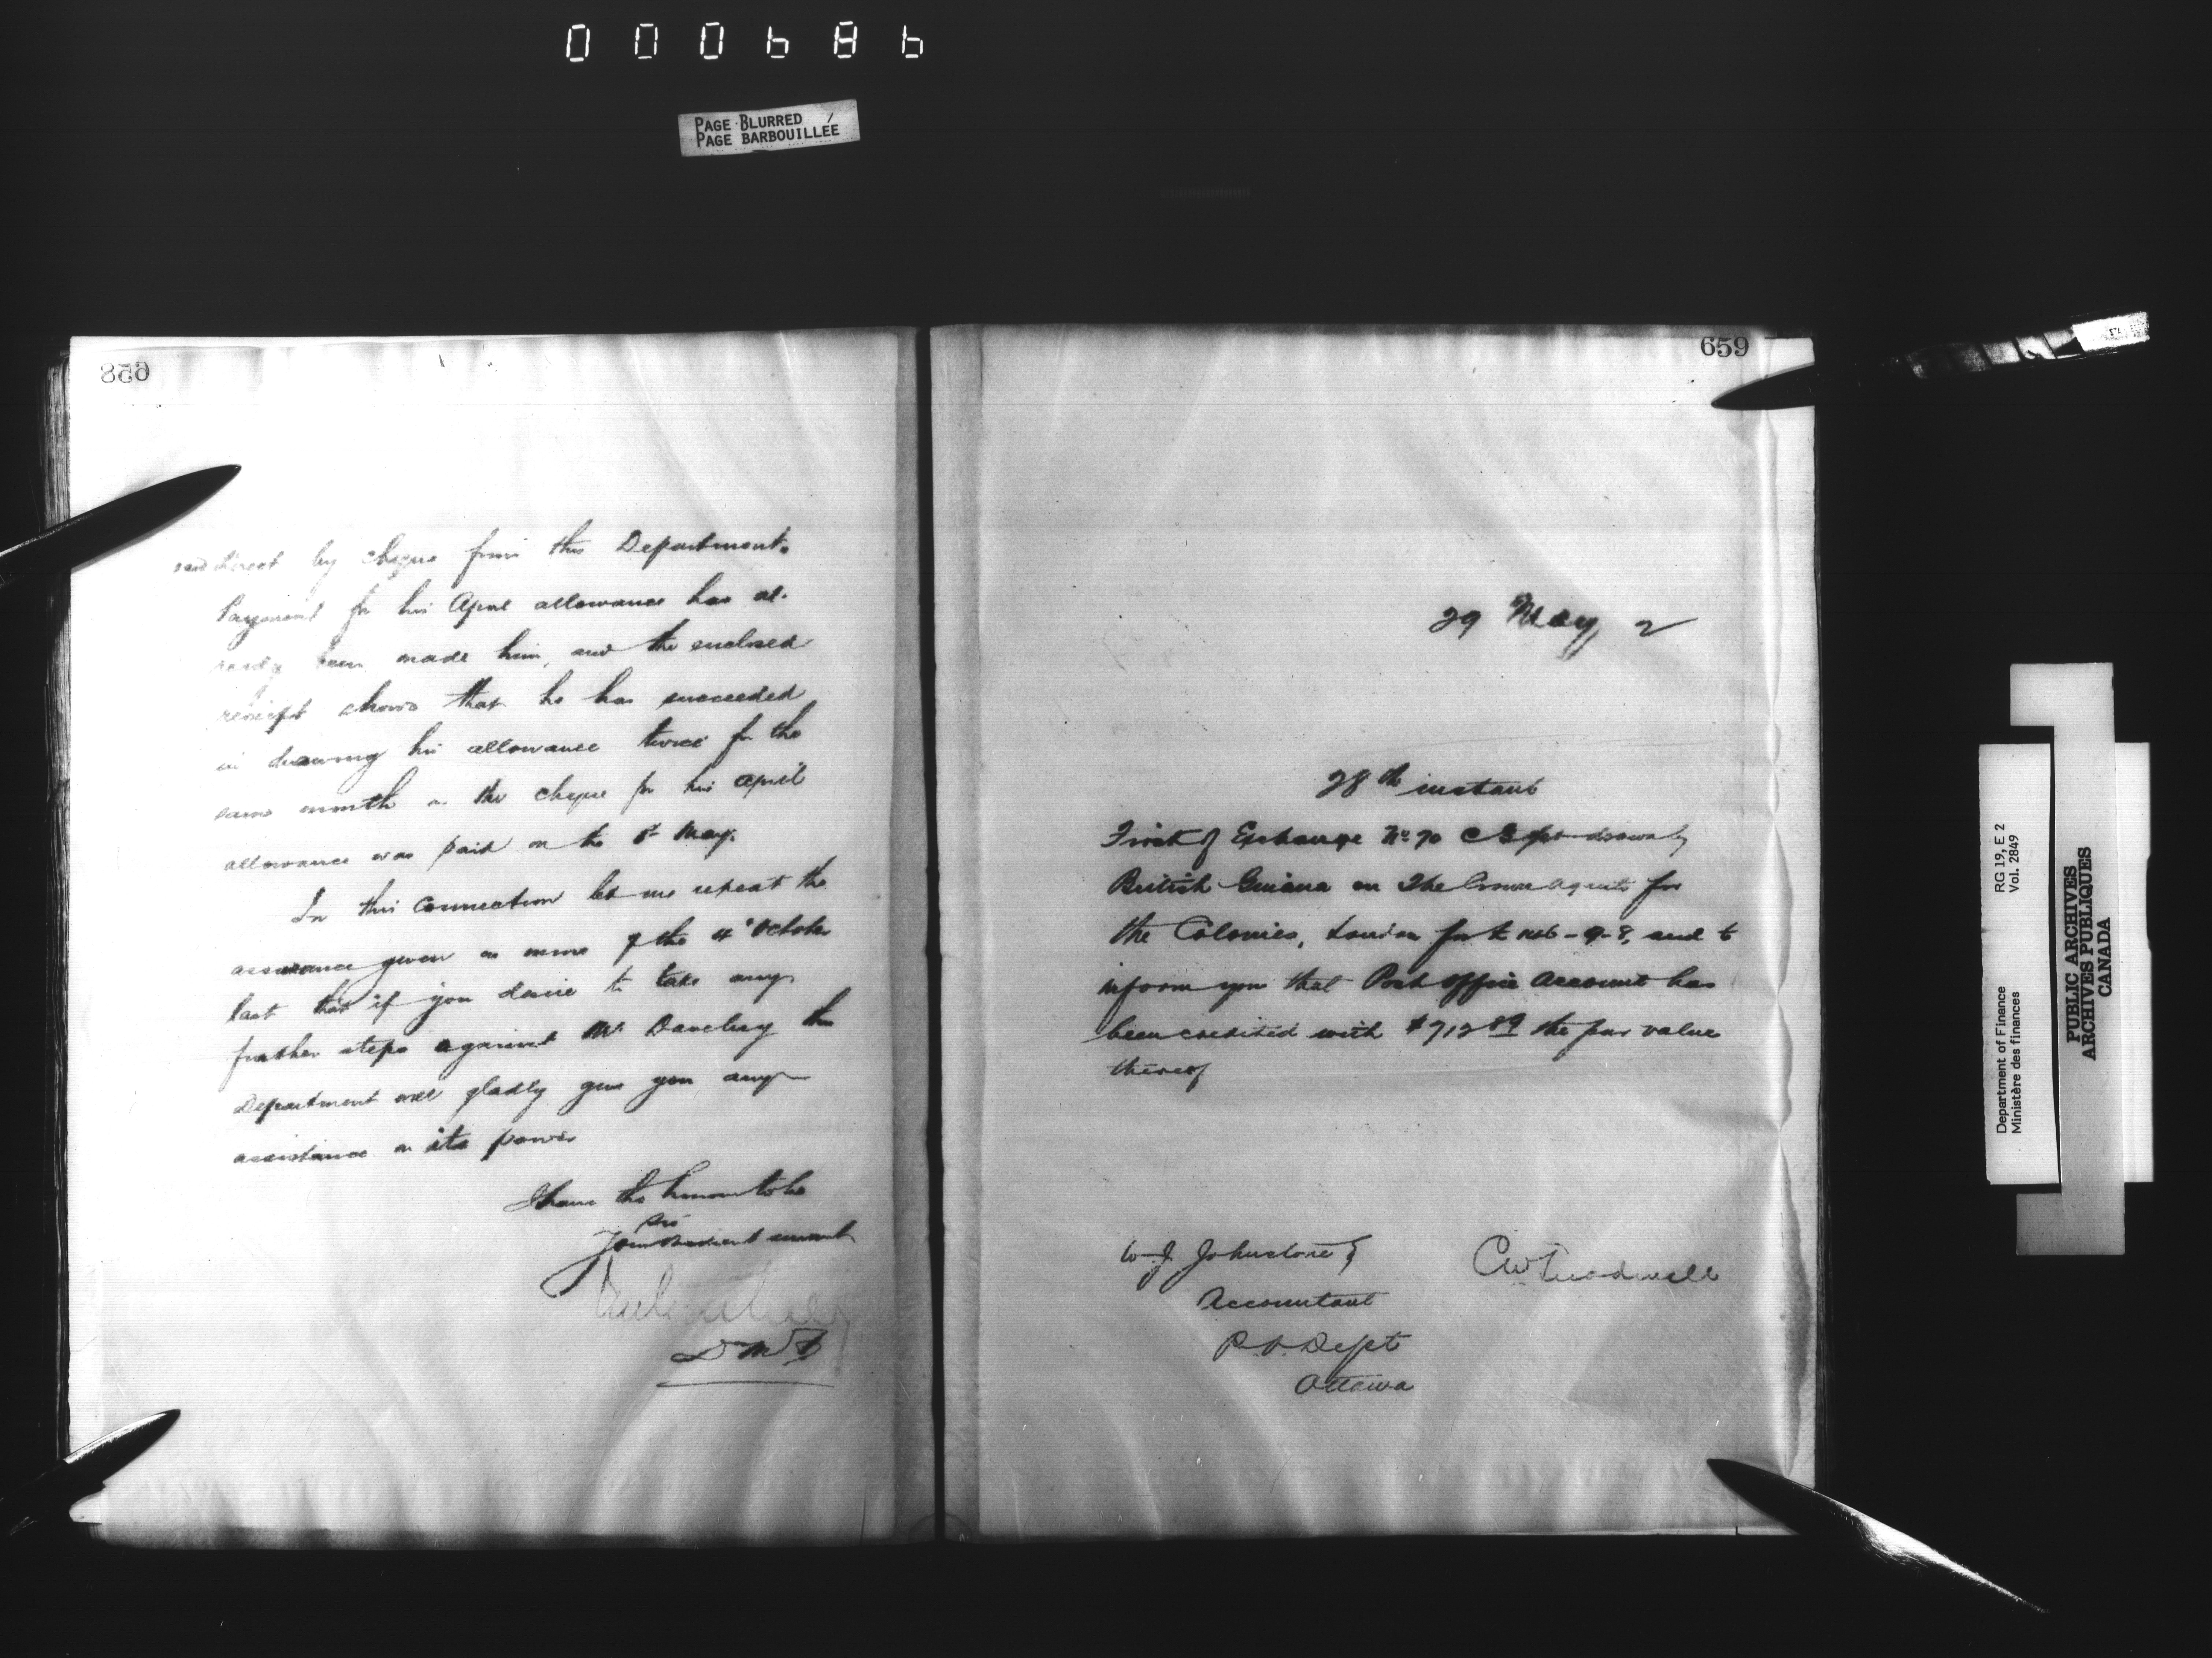 000686
PAGE BLURRED
PAGE BARBOUILLÉE
658
by cheque from this Department.
Payment for his April allowance has al-
ready been made him, and the enclosed
receipt shows that he has succeeded
in drawing his allowance twice for the
same month as the cheque for his April
allowance was paid on the May.
In this connection let me repeat the
assurance given in mine of the 4th October
last that if you desire to take any
further steps against Mr. the
Department will gladly give you any
assistance in its power
I have the honour to be
Sir
Your obedient servant
DMF
659
29 May 2
28th instant
First of Exchange No. 70 drawn by
British Guiana on The Crown Agents for
the Colonies, London for £146-9-8, and to
inform you that Post Office Account has
been credited with $712 89 the par value
thereof
W. J. Johnstone
CW Treadwell
Accountant
P.O. Dept
Ottawa
Department of Finance
Ministère des finances
RG 19, E 2
Vol. 2849
PUBLIC ARCHIVES
ARCHIVES PUBLIQUES
CANADA